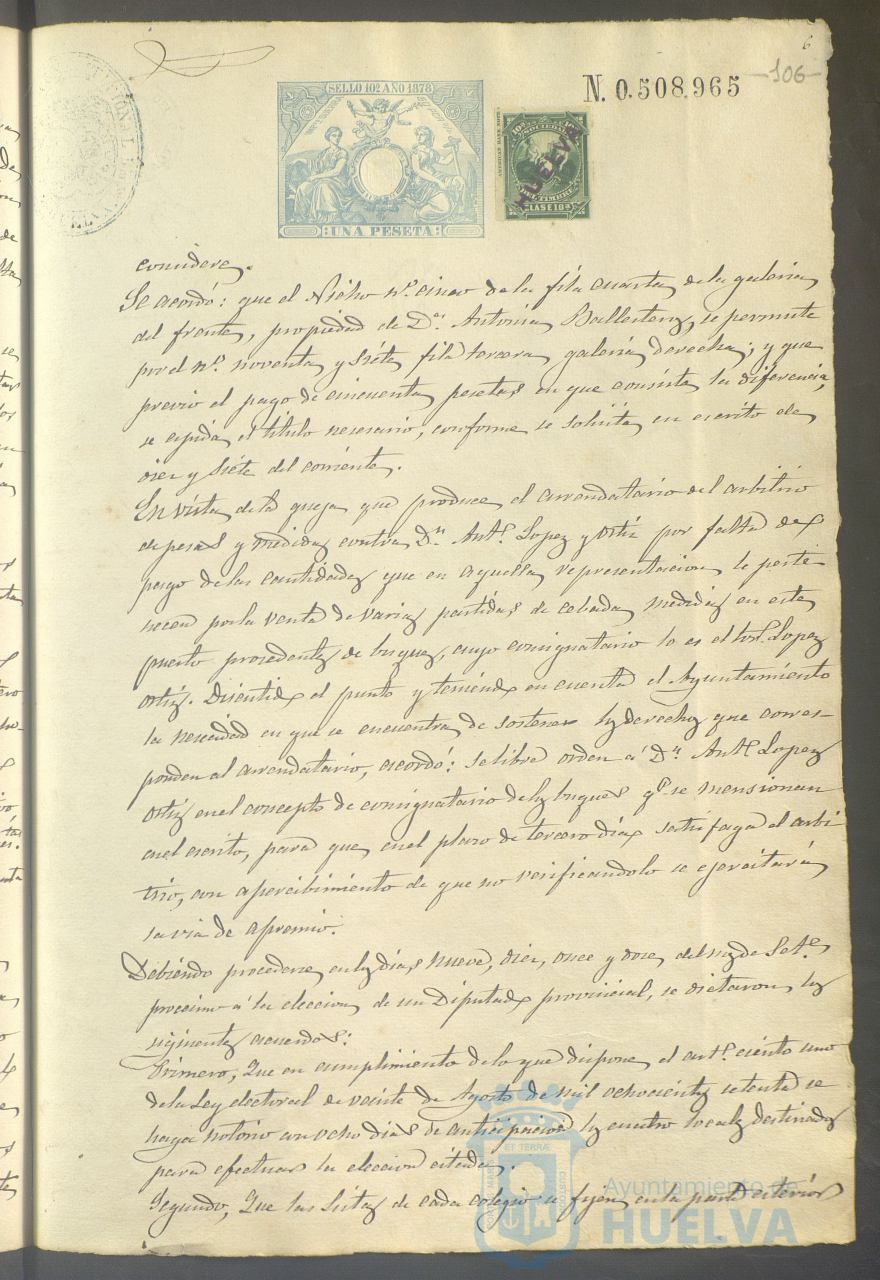 6
-106-
SELLO 10º AÑO 1878
UNA PESETA
N. 0.508.965
AMERICAN BANK NOTE
10º SOCIEDAD 10º
DEL TIMBRE
CLASE 10ª
HUELVA
considere.
Se acordó: que el Nicho nº cinco de la fila cuarta de la galeria
del frente, propiedad de Dª Antonia Ballesteroz, se permute
por el nº noventa y siéte fila tercera galeria derecha; y que
previo el pago de cincuenta pesetas en que consiste la diferencia,
se espida el titulo nesesario, conforme se solicita en escrito de
diez y siéte del corriente.
En vista de la queja que produce el arrendatario del arbitrio
de pesas y medidas contra Dn Antº Lopez y Ortiz por falta de
pago de las cantidades que en aquella representacion le perte
necen por la venta de varias partidas de cebada medidas en este
puerto prosedentes de buques, cuyo consignatario lo es el Sr Lopez
Ortiz. Discutido el punto y teniendo en cuenta el Ayuntamiento
la nesecidad en que se encuentra de sostener los derechos que corres-
ponden al arrendatario, acordó: se libre orden á Dn Antº Lopez
Ortiz en el concepto de consignatario de los buques qe se mensionan
en el escrito, para que en el plazo de tercero dia satisfaga el arbi
trio, con apercibimiento de que no verificandolo se ejercitará
la via de apremio.
Debiendo procederse en los dias nueve, diez, once y doce del mes de Sete
procsimo á la eleccion de un Diputado provincial, se dictaron los
siguientes acuerdos:
Primero, Que en cumplimiento de lo que dispone el artº ciento uno
de la Ley electoral de veinte de Agosto de mil ochocientos setenta se
haga notorio con ocho dias de anticipacion los cuatro locales destinados
para efectuar la eleccion citada.
Segundo, Que las listas de cada colegio se fijen en la parte esterior
ET TERRÆ
CUSTODIA
Ayuntamiento de
HUELVA